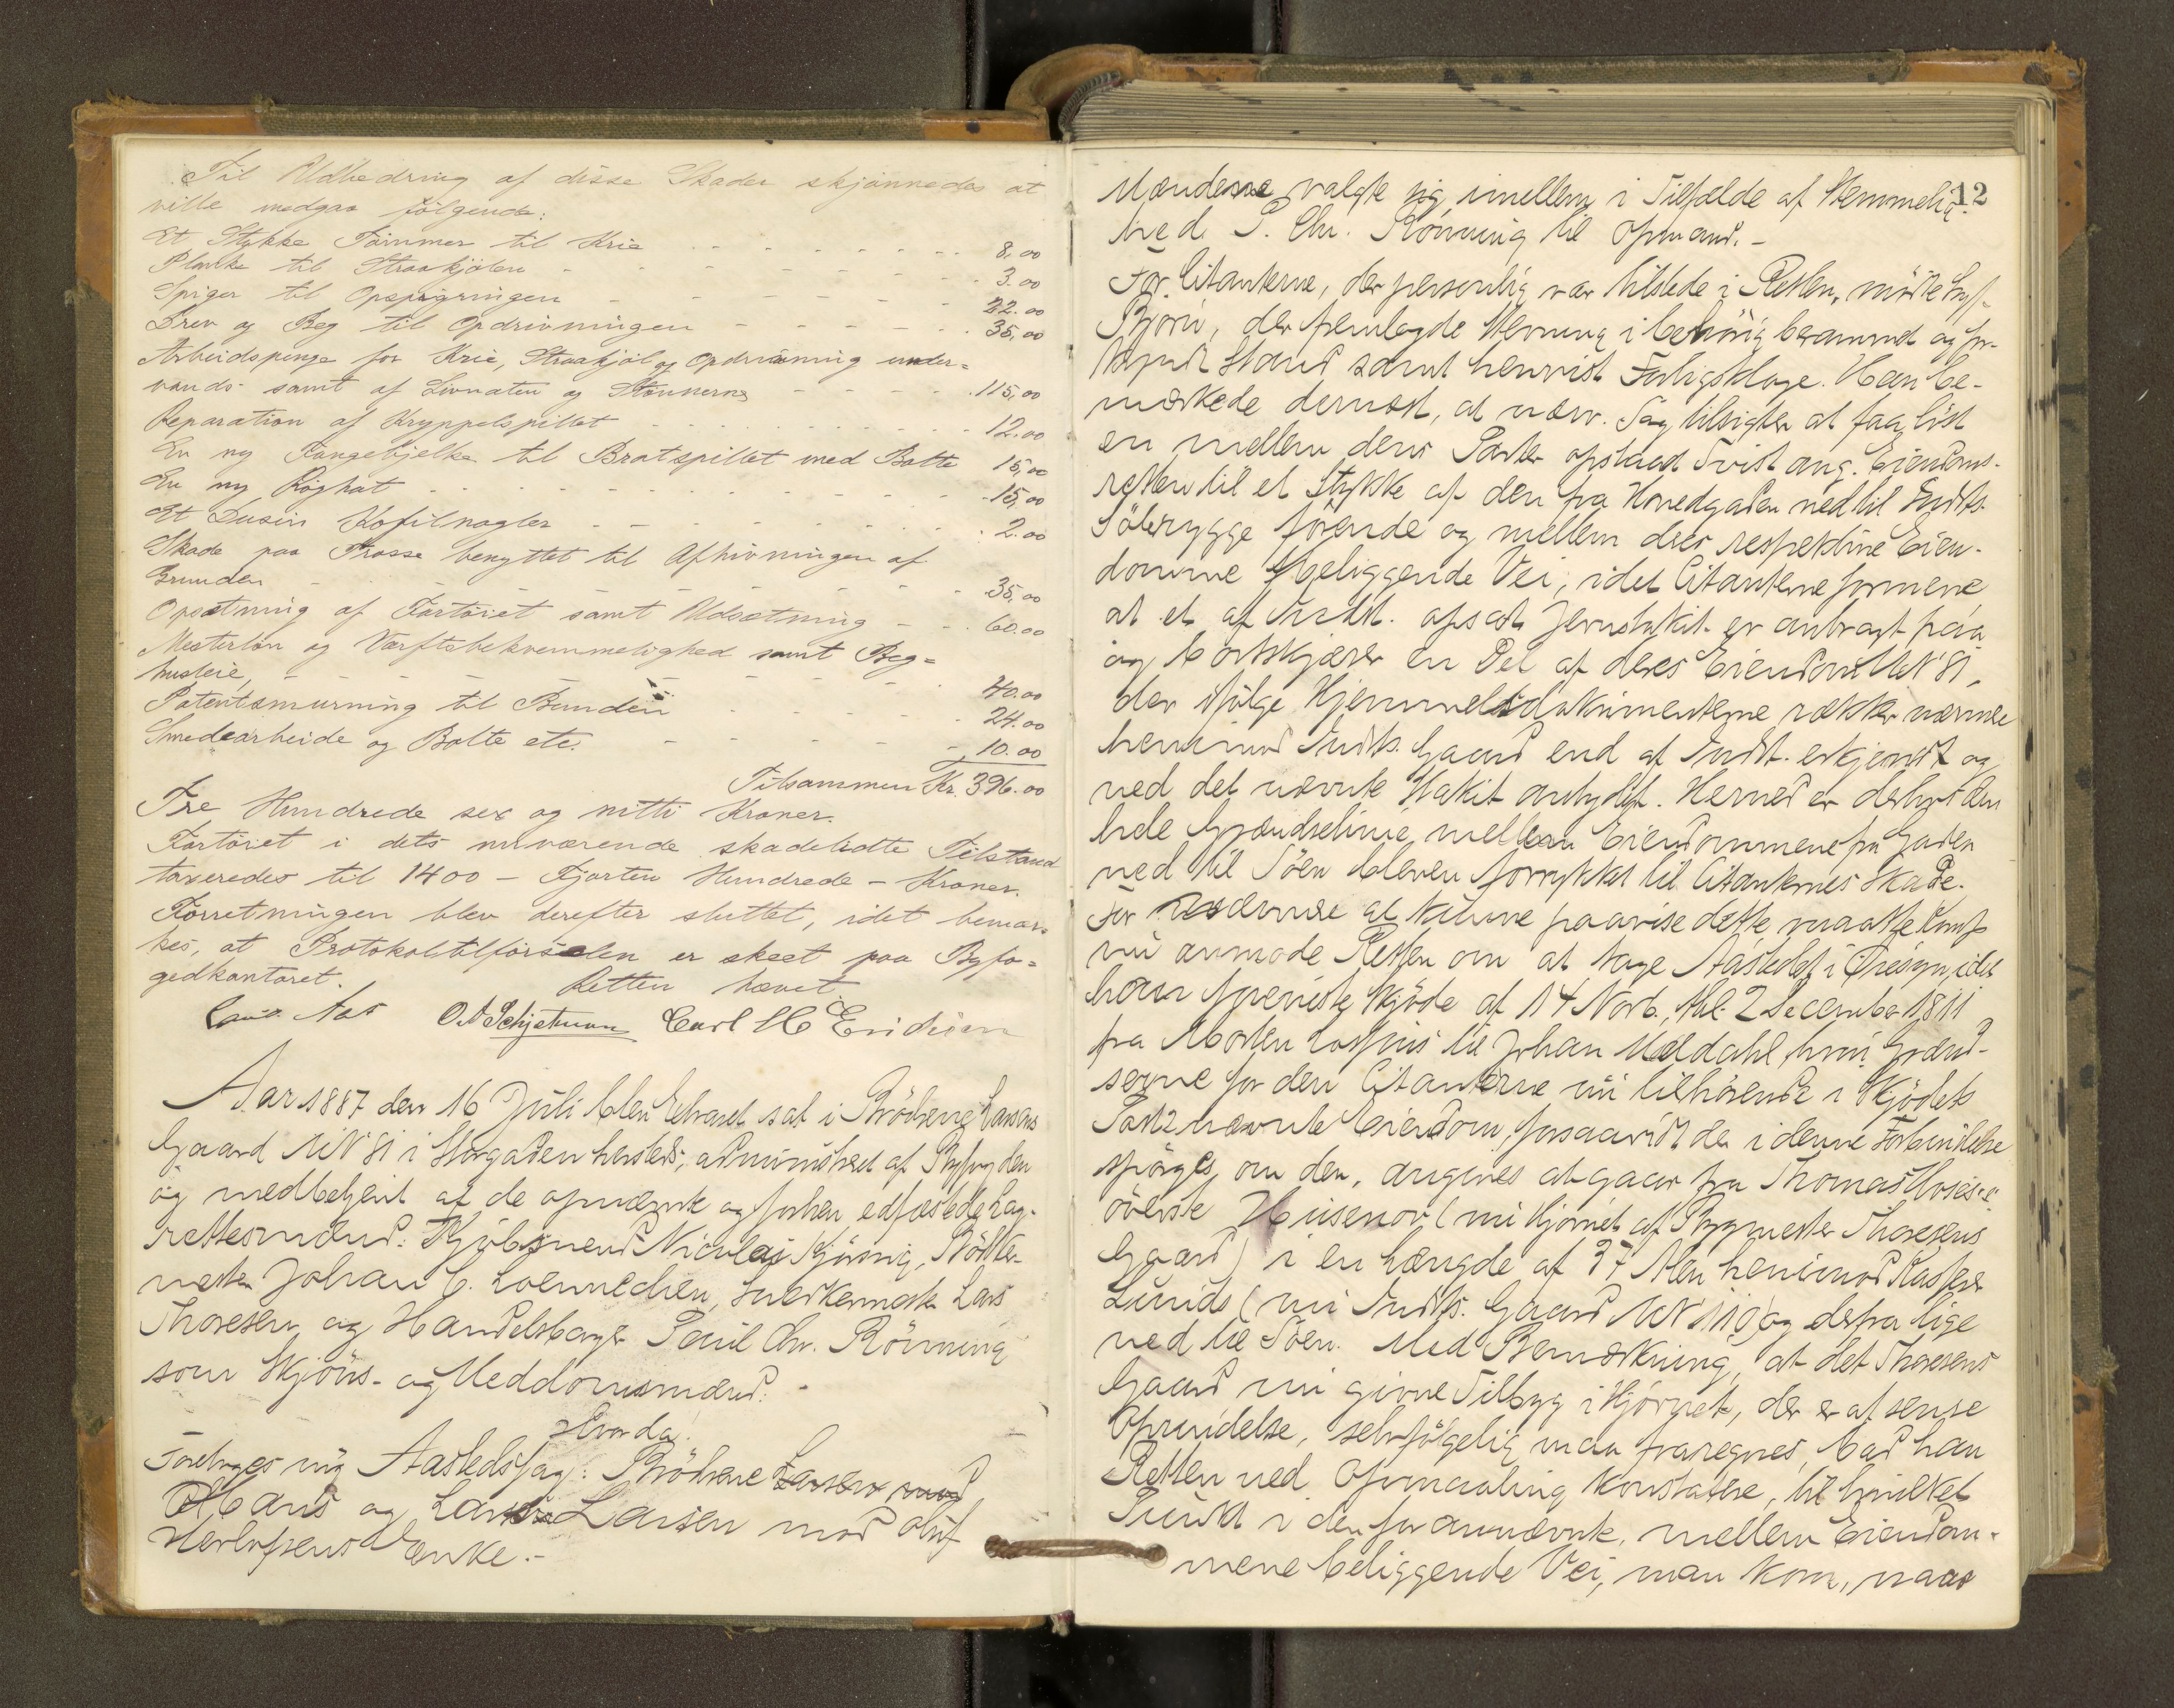 Til Udbedring af disse Skader skjønnedes at
ville medgaa følgende:
Et Stykke Tømmer til Krie - - - - - 8,00
Planke til Straakjølen - - - - - 3.00
Spiger til Opspigringen - - - - - 22.00
Drev og Beg til Opdrivningen - - - - - 35,00
Arbeidspenge for Krie, Straakjøl og Opdrivning under=
vands samt af Livnaten og Stønnerne - - - - 115,00
Reparation af Kryppelspillet - - - - - 12.00
En ny Fangebjelke til Bratspillet med Bolte 15,00
En ny Røghat - - - - - 15,00
Et Dusin Kofilnagler - - - - - 2.00
Skade paa Trosse benyttet til Afhivningen af
Grunden - - - - - 35,00
Opsætning af Fartøiet samt Udsætning - - - 60.00
Mesterløn og Værftsbekvemmelighed samt Beg=
husleie, - - - - - 40.00
Patentsmurning til Bunden - - - - - 24.00
Smedearbeide og Bolte etc. - - - - - 10.00
Tilsammen Kr. 396.00
Tre Hundrede sex og nitti Kroner.
Fartøiet i dets nuværende skadelidte Tilstand
taxeredes til 1400 - Fjorten Hundrede - Kroner.
Forretningen blev derefter sluttet, idet bemær-
kes, at Protokoltilførselen er skeet paa Byfo=
gedkontoret.
Retten hævet
Aas O. A Schjetman Carl H C Eriksen
Aar 1887 den 16 Juli blev Extraret sat i Brødrene Larsens
Gaard MN 81 i Storgaden hersteds, administreret af Byfogden
og medbetjent af de opnævnte og forhen edfæstede Lag-
rettesmænd: Kjøbmend Nicolai Kjørsvig, Bødker-
mester Johan C. Loennechen, Snedkermester Lars
Thoresen og Handelsborger Paul Chr. Rønning
som Skjøns- og Meddomsmænd. -
Hvorda!
Foretoges ny Aastedssag: Brødrene Larsen mod
Hans og Lars Larsen mod Oluf
Herlofsens Enke. -
12
Mændene valgte sig imellem i Tilfælde af Stemmelig-
hed P. Chr. Rønning til Opmand. -
For Citanterne, der personlig var tilstede i Retten, mødte
Bjørn, der fremlagde Stevning i behørig berammet og for-
kyndt Stand samt henvist Forligsklage. Han be-
mærkede dernæst, at nærv. Sag tilsigter at faa løst
en mellem dens Parter opstaaet Tvist ang. Eiendoms-
retten til et Stykke af den fra Hovedgaden ned til Indts.
Søbrygge førende og mellem deres respektive Eien-
domme beliggende Vei, idet Citanterne formene
at et af Indst. opsat Jernstakit er anbragt paa
og bortskjærer en Del af deres Eiendom MN 81,
der ifølge Hjemmelsdokumenterne rækker nærmere
henimod Indts. Gaard end af Indst. erkjendt og
ved det nævnte Stakit antydet. Herved er derhos den
hele Grændselinie mellem Eiendommene fra Gaden
ned til Søen bleven forrykket til Citanternes Skade.
For nærmere at kunne paavise dette maatte Komp
nu anmode Retten om at tage Aastedet i Øiesyn, idet
han fremviste Skjøde af 14 Novb., thl. 2 December 1811
fra Morten Cossius til Johan Meldahl, hvori Grænd-
serne for den Citanterne nu tilhørende i Skjødets
Post 2 nævnte Eiendom, forsaavidt der i denne Forbindelse
spørges om den, angives at gaa fra Thomas Moses's
øverste Husenov (nu Hjørnet af Bygmester Thoresens
Gaard) i en Længde af 37 Alen henimod Kasserer
Lunds (nu Indts. Gaard MN 110) og derfra lige
ned til Søen. Med Bemærkning, at det Thoresens
Gaard nu givne Tilbyg i Hjørnet, der er af senere
Oprindelse, selvfølgelig maa fraregnes, bad han
Retten ved Opmaaling konstatere, til hvilket
Punkt i den forannævnte, mellem Eiendom-
mene beliggende Vei, man kom, naar